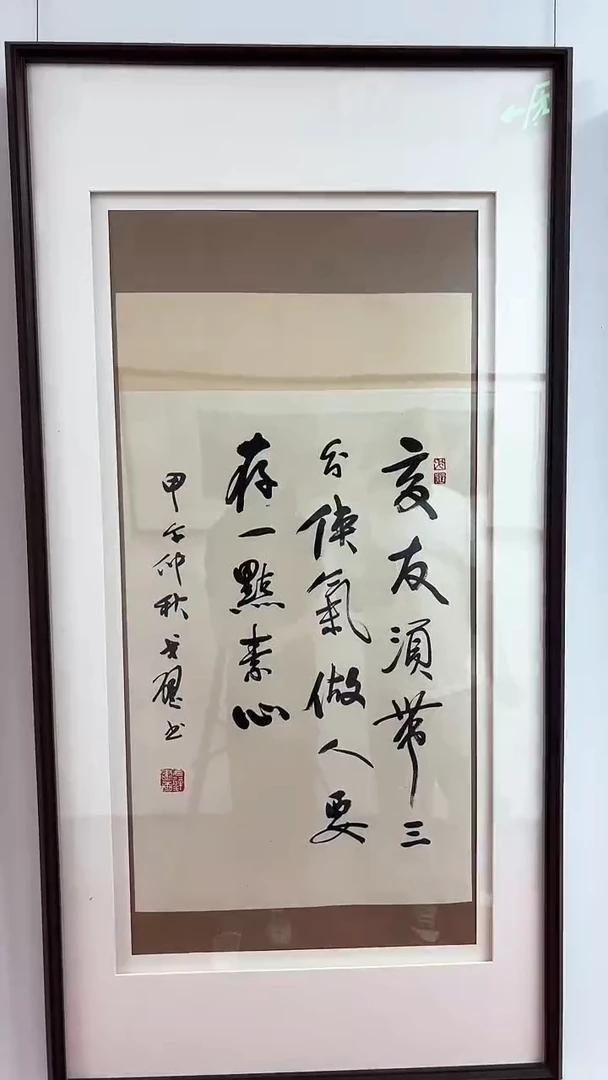 交友須帶三
分俠氣做人要
存一點素心
甲午仲秋 书